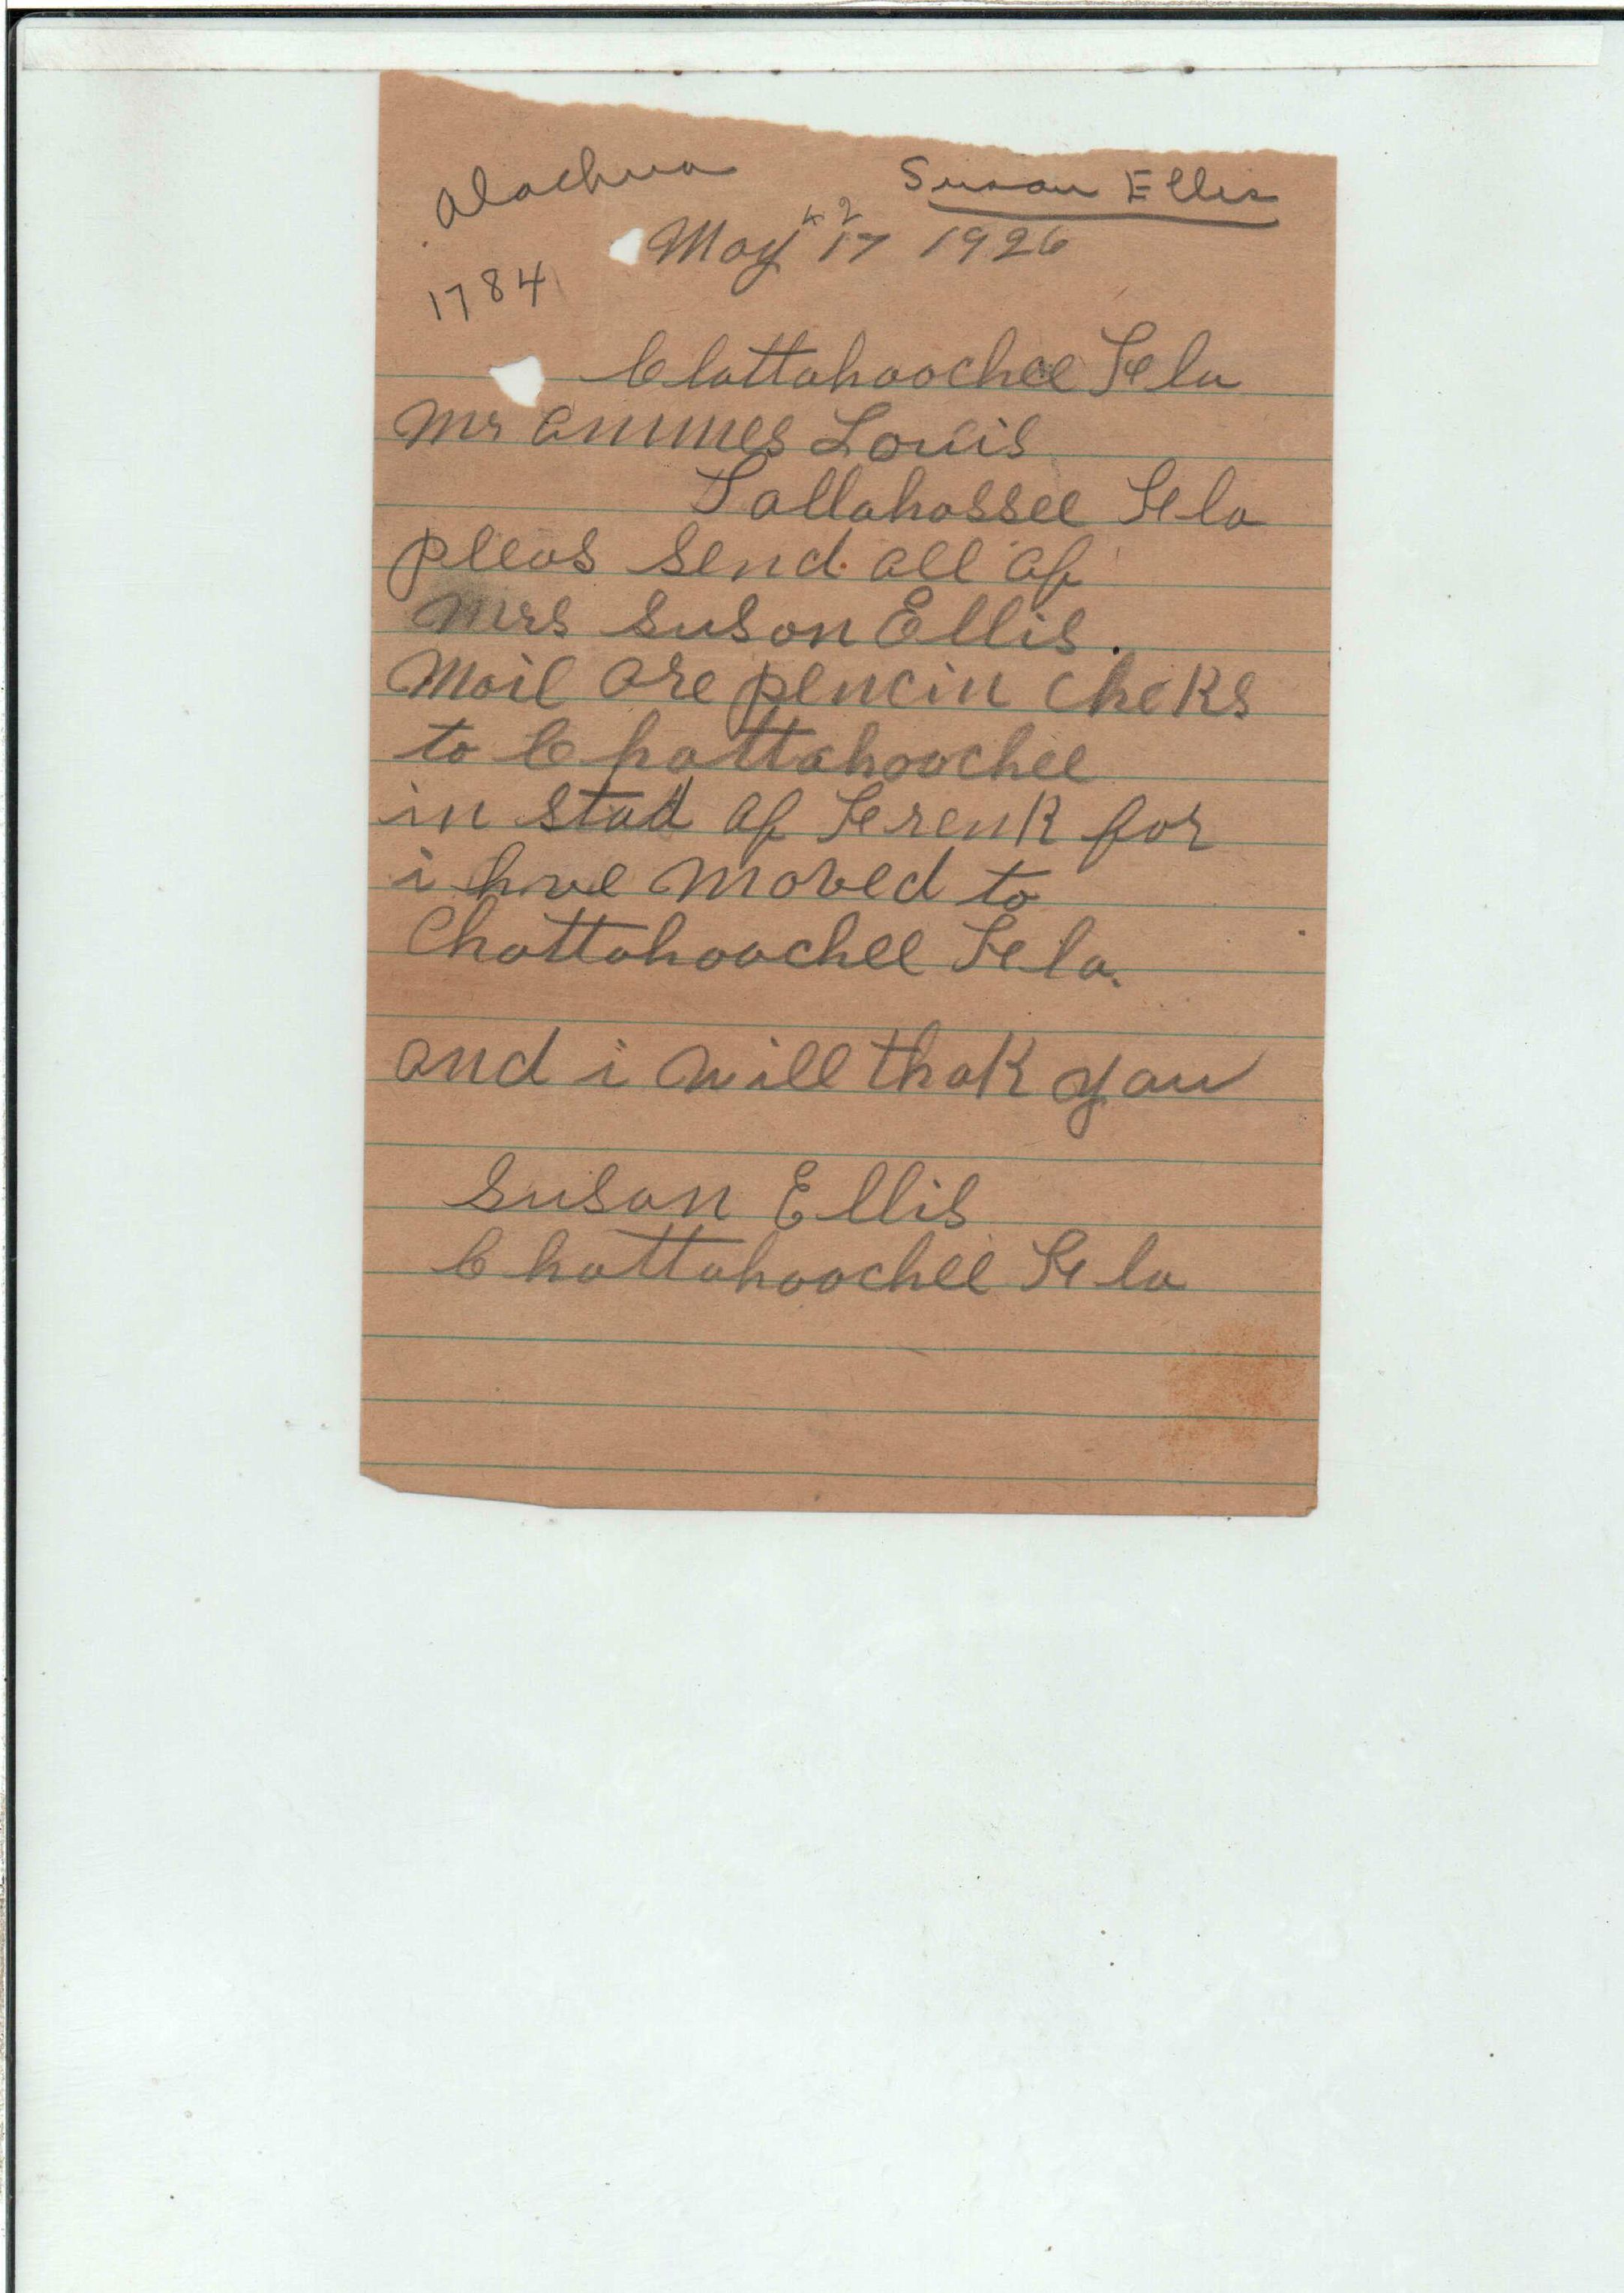 Alachua Susan Ellis
42
May 17 1926
1784
Clattahoochee Fla
Mr ammes Louis
Tallahassee Fla
pleas send all of
Mrs Suson Ellis.
Mail are pencin cheks
to Chattahoochee
in stad of Frenk for
i hve moved to
Chattahoochee Fla.
and i will thak you
Susan Ellis
Chattahoochee Fla